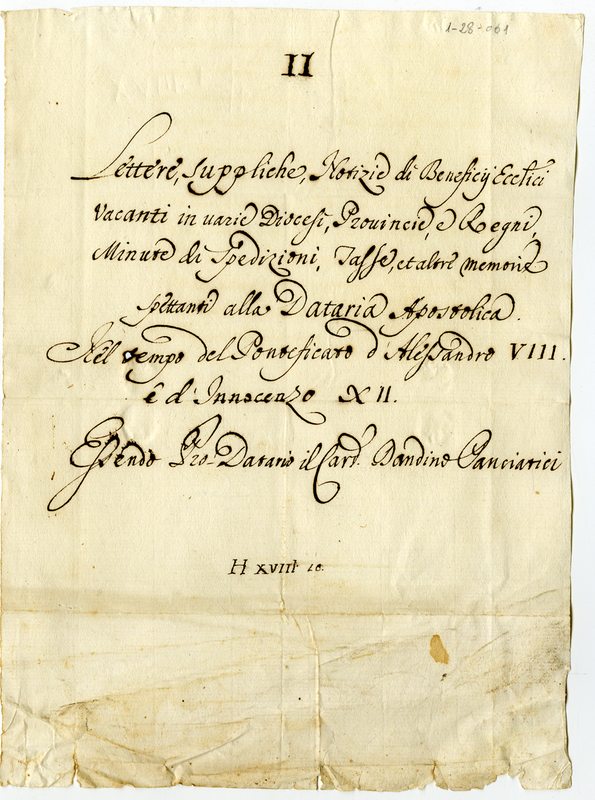 1-28-001
II
Lettere, suppliche, Notizie di Beneficij Ecclici
Vacanti in varie Diocesi, Provincie, e Regni,
Minute di Spedizioni, Tasse, et altre memorie
spettanti alla Dataria Apostolica.
Nel tempo del Ponteficato d'Alessandro VIII.
e d'Innocenzo XII.
Essendo Pro-Datario il Card. Bandino Panciatici
H XVIII